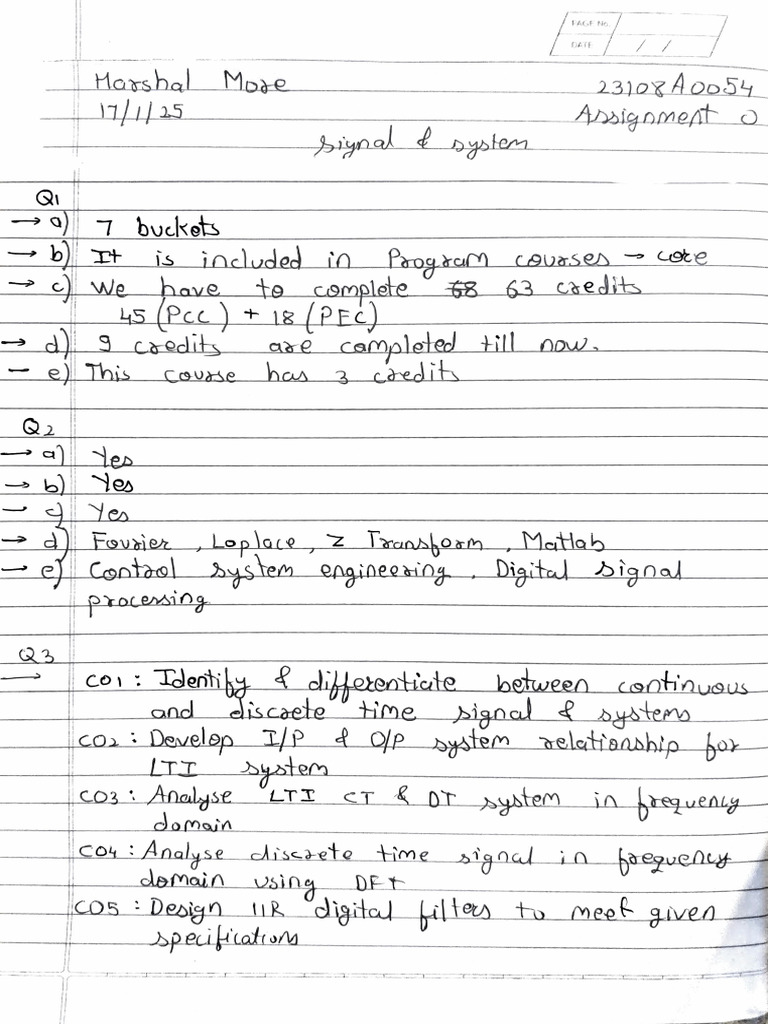 PAGE No.
DATE / /
Harshal More 23108A0054
17/1/25 Assignment 0
Signal & system
Q1
→ a) 7 buckets
→ b) It is included in Program courses → core
→ c) We have to complete 63 credits
45 (PCC) + 18 (PEC)
→ d) 9 credits are completed till now.
– e) This course has 3 credits
Q2
→ a) Yes
→ b) Yes
→ c) Yes
→ d) Fourier, Laplace, Z Transform, Matlab
→ e) Control system engineering, Digital signal
processing
Q3
→ CO1 : Identify & differentiate between continuous
and discrete time signal & systems
CO2 : Develop I/P & O/P system relationship for
LTI system
CO3 : Analyse LTI CT & DT system in frequency
domain
CO4 : Analyse discrete time signal in frequency
domain using DFT
CO5 : Design IIR digital filters to meet given
specifications